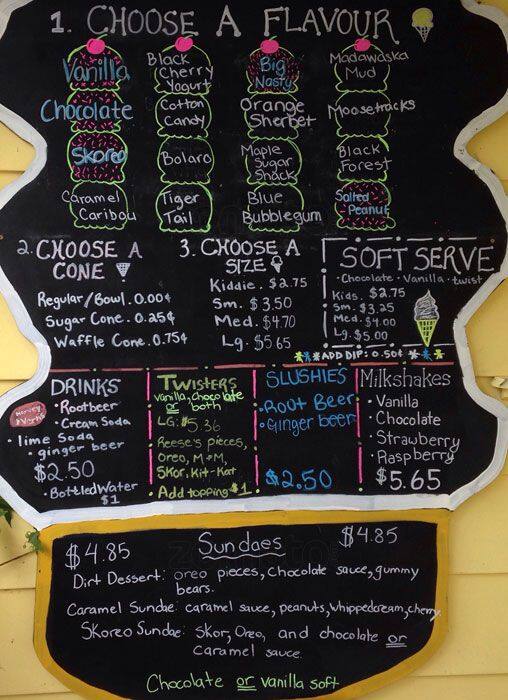 1. CHOOSE A FLAVOUR
Vanilla
Chocolate
Skoreo
Caramel
Caribou
Black
Cherry
Yogurt
Cotton
Candy
Bolaro
Tiger
Tail
Big
Nasty
Orange
Sherbet
Maple
Sugar
Shack
Blue
Bubblegum
Madawaska
Mud
Moosetracks
Black
Forest
Salted
Peanut
2. CHOOSE A
CONE
Regular/Bowl. 0.00¢
Sugar Cone. 0.25¢
Waffle Cone. 0.75¢
3. CHOOSE A
SIZE
Kiddie. $2.75
Sm. $3.50
Med. $4.70
Lg. $5.65
SOFT SERVE
• Chocolate • Vanilla • twist
Kids. $2.75
Sm. $3.25
Med. $4.00
Lg. $5.00
ADD DIP: 0.50¢
DRINKS
• Rootbeer
• Cream Soda
• lime Soda
• ginger beer
$2.50
• Bottled Water
$1
TWISTERS
vanilla, chocolate
or both
LG: $5.36
Reese's pieces,
Oreo, M+M,
SKor, Kit-Kat
• Add topping $1
SLUSHIES
• Root Beer
• Ginger beer
$2.50
Milkshakes
• Vanilla
• Chocolate
• Strawberry
• Raspberry
$5.65
$4.85 Sundaes $4.85
Dirt Dessert: oreo pieces, chocolate sauce, gummy
bears.
Caramel Sundae: caramel sauce, peanuts, whippedcream, cherry
Skoreo Sundae: Skor, Oreo, and chocolate or
caramel sauce.
Chocolate or vanilla soft